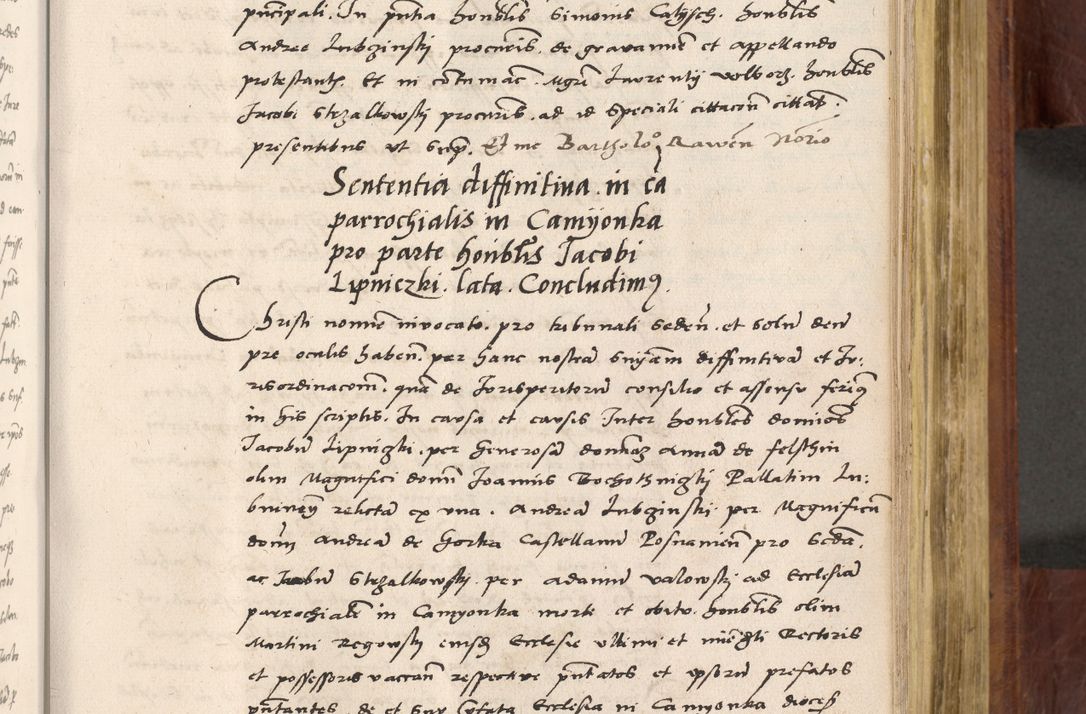 pn̄cipali. In pn̄tia honblis Simonis Calysch. honblis
Andree Lubzinsky procuris. de gravamīe et appellando
protestantꝭ. Et in cōtumac. Mgri Laurentij honblis
Jacobi Strzalkowsky procuris. ad id speciali cittacōn cittat.
presentibus ut supra. Et me Bartholo Rawēn Notrio
Sententia diffinitiva. in cā
parrochialis in Camyonka
pro parte honblis Jacobi
Lipniczki. lata. Concludimꝰ.
Christi nomine invocato. pro tribunali seden̄. et solū deū
pre oculis haben̄. per hanc nostrā snīam diffinitivā et Ju:
risordinacōm. quā de Jurisperitorū consilio et assensu ferimꝰ
in his scriptis. In causa et causis Inter honbles dominos
Jacobū Lipnizki. per Generosā donnā Annā de felschin
olim Magnifici domn̄ Joannis Palatin Lu:
blinen̄ relictā ex una. Andreā Lubzinski per Magnificū
dōm Andreā de Gorka Castellanū Posnanien̄ pro secda.
ac Jacobū Strzalkowsky. per Adamū valowsky ad Ecclesiā
parrochialē in Camyonka morte et obitu. honblis olim
Martini Regowsky eiusd Ecclesie ultimi et Rectoris
et possessoris vaccan̄ respective pn̄tatos et ipsorū prefatos
pn̄tantes. de et sup Ecclesia in Camyonka dioces